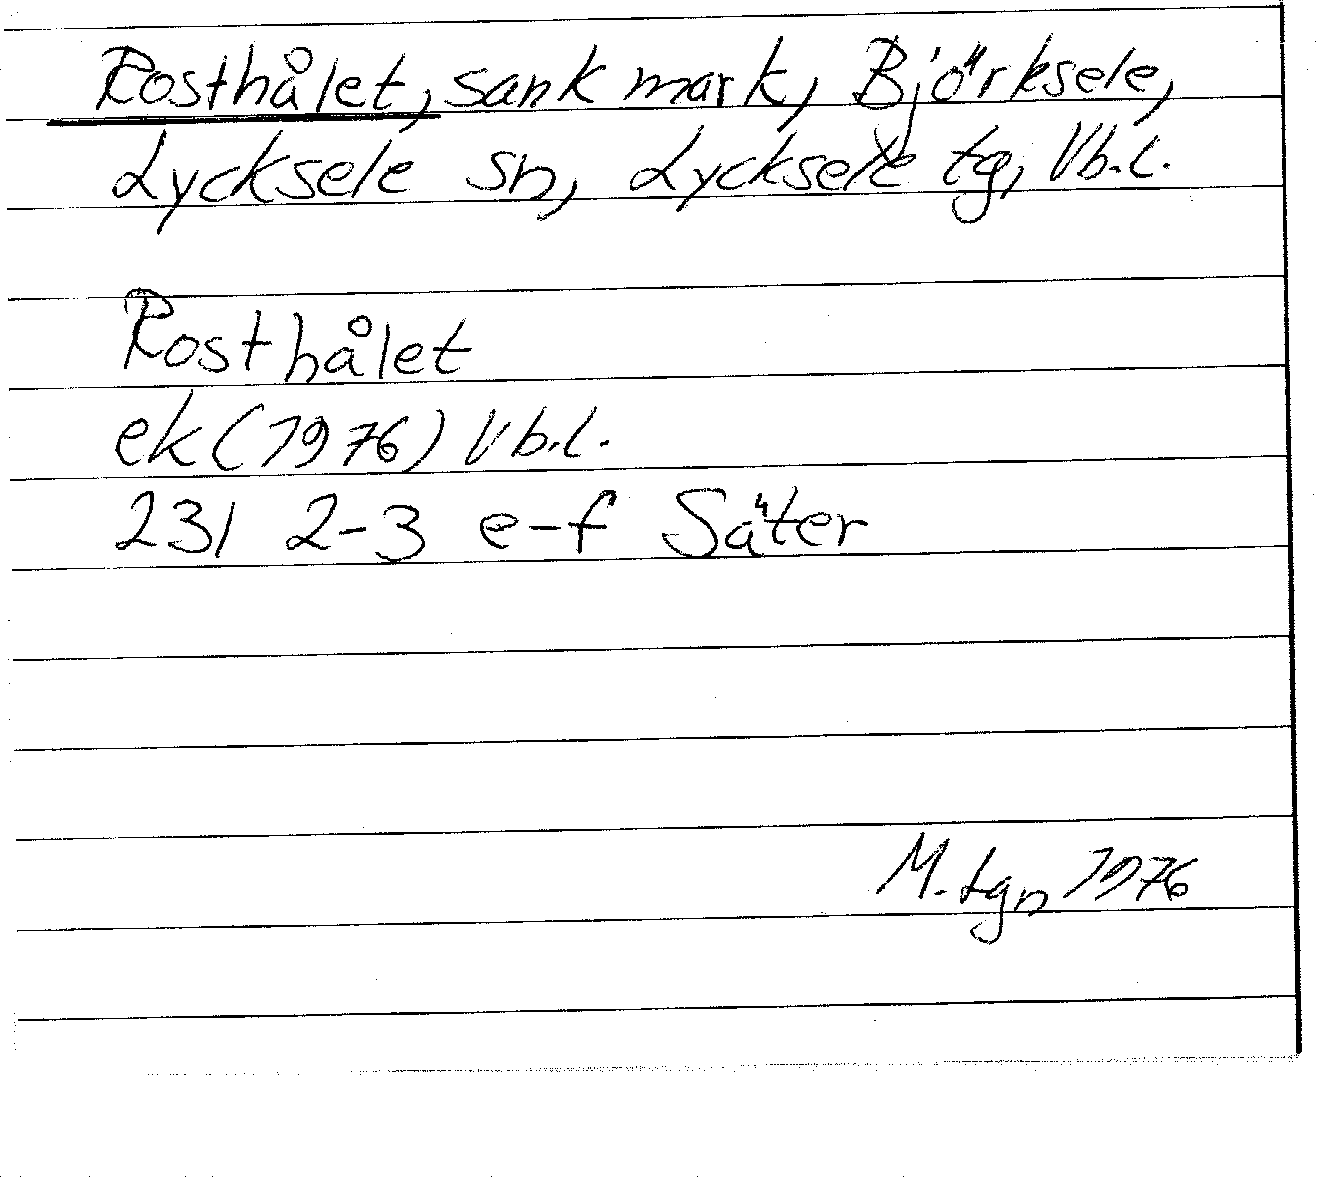 Rosthålet, sank mark, Björksele,
Lycksele sn, Lycksele tg, Vb.l.
Rosthålet
ek (1976) Vb.l.
23I 2-3 e-f Säter
M. tgn 1976